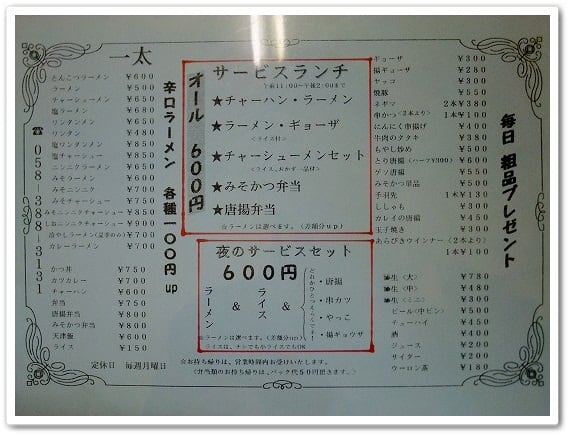 一太
とんこつラーメン ¥600
ラーメン ¥500
チャーシューメン ¥650
塩ラーメン ¥680
ワンタンメン ¥650
ワンタン ¥480
塩ワンタンメン ¥850
塩チャーシュー ¥850
ニンニクラーメン ¥650
みそラーメン ¥600
みそニンニク ¥700
みそチャーシュー ¥750
みそニンニクチャーシュー ¥850
しおニンニクチャーシュー ¥900
冷やしラーメン(夏季のみ) ¥700
カレーラーメン ¥700
かつ丼 ¥750
カツカレー ¥700
チャーハン ¥600
弁当 ¥750
唐揚弁当 ¥800
みそかつ弁当 ¥800
天津飯 ¥600
ライス ¥150
定休日 毎週月曜日
☎058-388-3131
辛口ラーメン 各種一〇〇円up
オール 600円
サービスランチ
午前11:00〜午後2:00まで
★チャーハン・ラーメン
★ラーメン・ギョーザ
(ライス付)
★チャーシューメンセット
(ライス、おかず一品付)
★みそかつ弁当
★唐揚弁当
☆ラーメンは選べます。(差額分up)
夜のサービスセット
600円
ラーメン
&
ライス
&
どれかひとつえらんで下さい
・唐揚
・串カツ
・やっこ
・揚ギョウザ
☆ラーメンは選べます。(差額分up)
ライスは、ナシでも小ライスでもOK
☆お持ち帰りは、営業時間内お受けいたします。
(弁当類のお持ち帰りは、パック代50円頂きます。)
ギョーザ ¥300
揚ギョーザ ¥280
ヤッコ ¥300
焼豚 ¥550
ネギマ 2本¥380
串かつ(2本より) 1本¥100
にんにく串揚げ ¥400
牛肉のタタキ ¥380
もやし炒め ¥500
とり唐揚(ハーフ¥300) ¥600
ゲソ唐揚 ¥550
みそかつ単品 ¥500
手羽先 1本¥130
ししゃも ¥300
カレイの唐揚 ¥450
玉子焼き ¥300
あらびきウインナー(2本より)
1本¥100
生(大) ¥780
生(中) ¥480
生(ミニ) ¥300
ビール(中ビン) ¥500
チューハイ ¥450
酒 ¥400
ジュース ¥200
サイダー ¥200
ウーロン茶 ¥180
毎日 粗品プレゼント